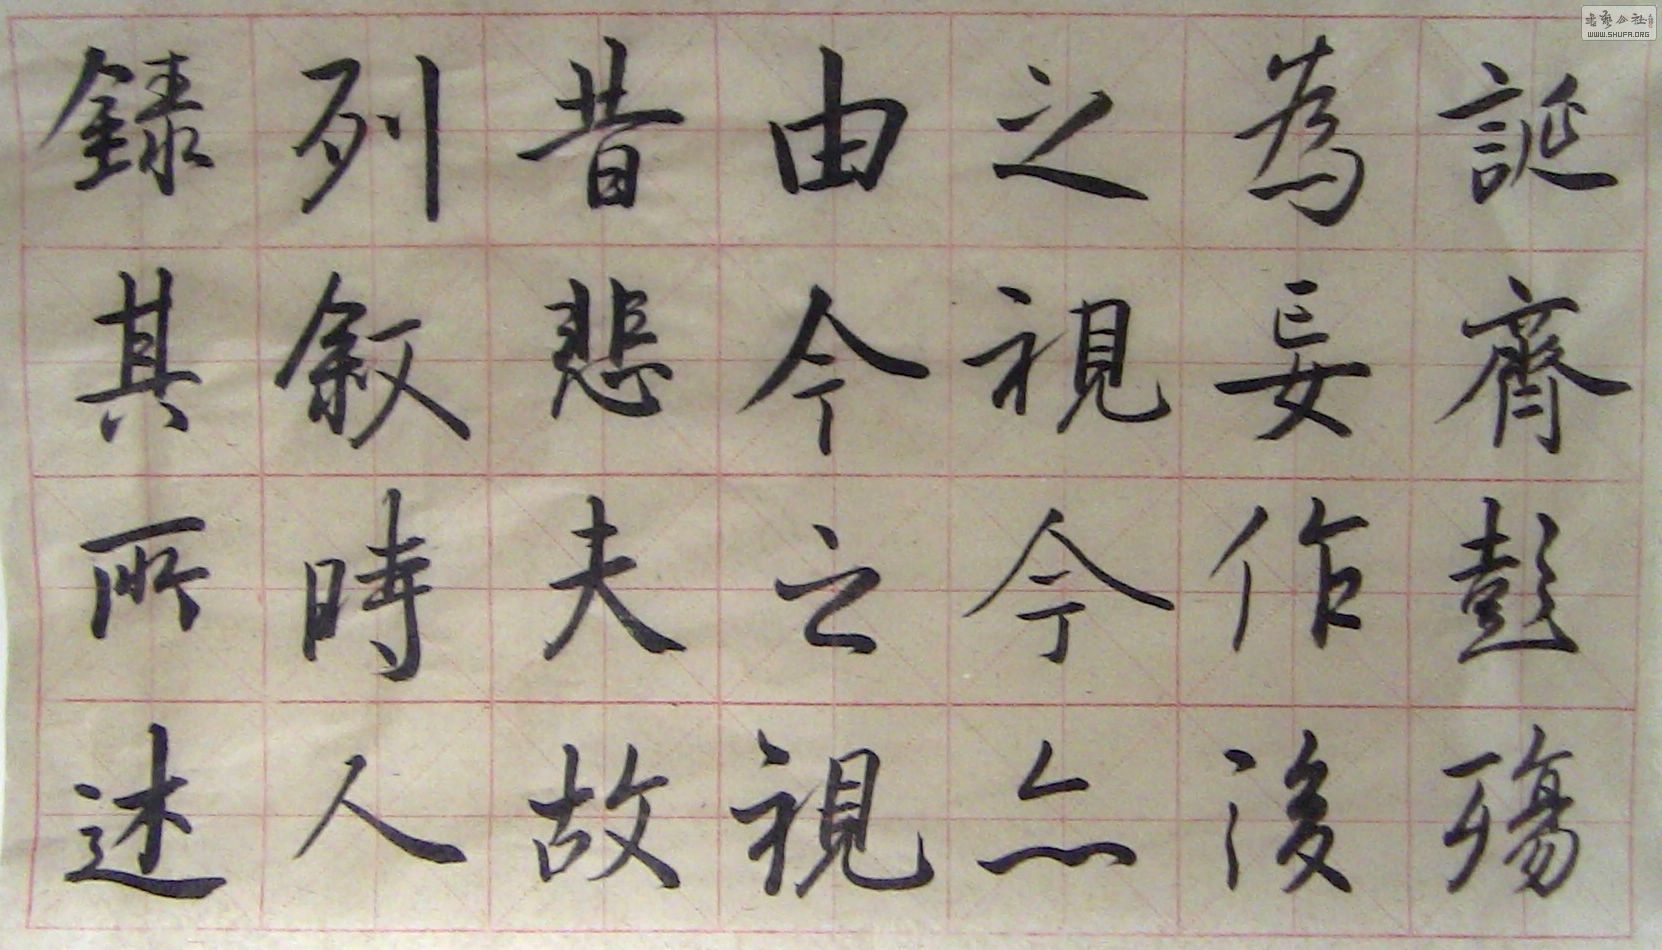 誕齊彭殤
為妄作後
之視今亦
由今之視
昔悲夫故
列叙時人
錄其所述
書藝公社
WWW.SHUFA.ORG